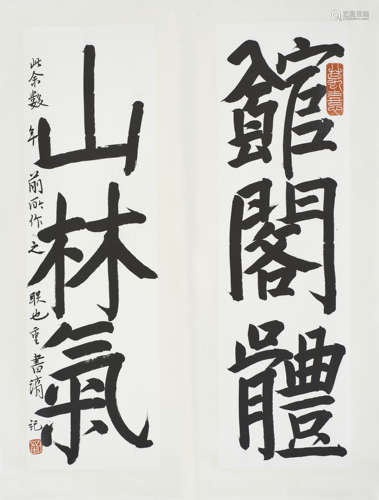 館閣體
山林氣
此余數年前所作之聯也重書滴記